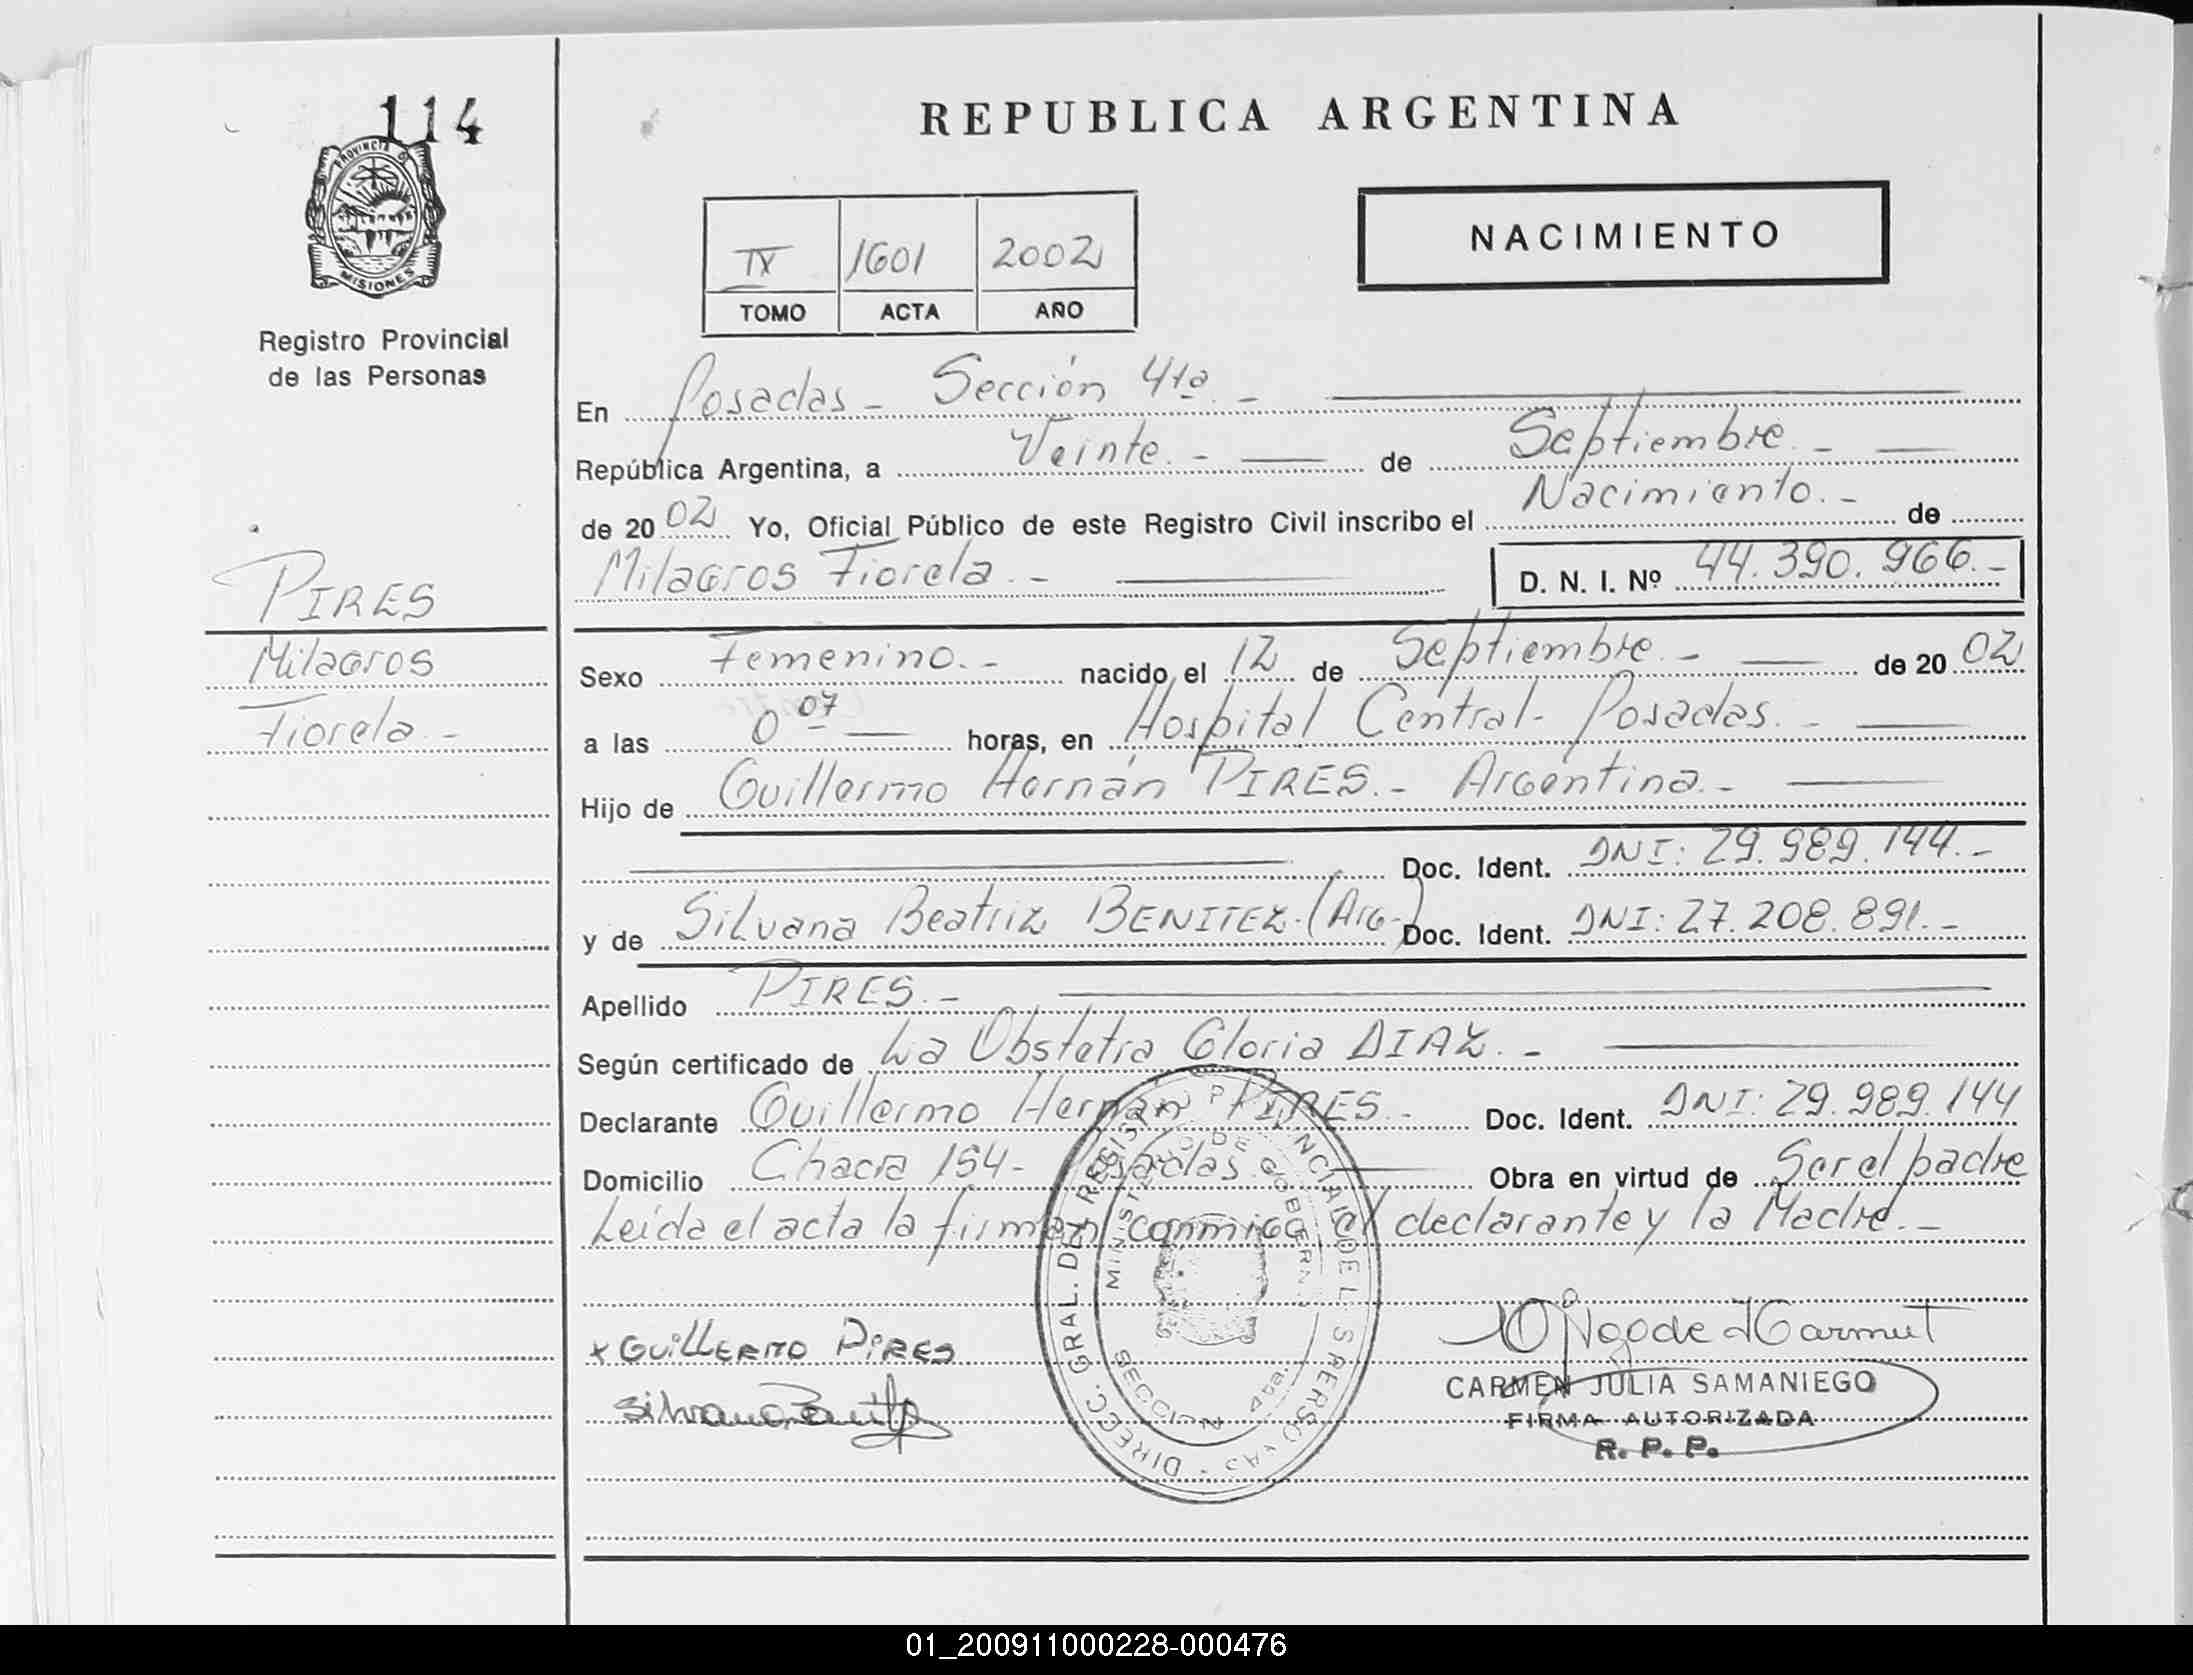 114
PROVINCIA DE
MISIONES
Registro Provincial
de las Personas
PIRES
Milagros
Fiorela.-
REPUBLICA ARGENTINA
NACIMIENTO
IX 1601 2002
TOMO ACTA AÑO
En Posadas - Sección 4ta.-
República Argentina, a Veinte.- de Septiembre.-
de 2002 Yo, Oficial Público de este Registro Civil inscribo el Nacimiento.- de
Milagros Fiorela.- D. N. I. Nº 44.390.966.-
Sexo Femenino.- nacido el 12 de Septiembre.- de 2002
a las 0 07 horas, en Hospital Central- Posadas.-
Hijo de Guillermo Hernán PIRES.- Argentina.-
Doc. Ident. DNI: 29.989.144.-
y de Silvana Beatriz BENITEZ.(Arg.-) Doc. Ident. DNI: 27.208.891.-
Apellido PIRES.-
Según certificado de La Obstetra Gloria DIAZ.-
Declarante Guillermo Hernán PIRES.- Doc. Ident. DNI: 29.989.144
Domicilio Chacra 154- Posadas Obra en virtud de Ser el padre
Leída el acta la firman conmigo el declarante y la Madre.-
x GUILLERMO PIRES
Silvana Benitez
CARMEN JULIA SAMANIEGO
FIRMA AUTORIZADA
R. P. P.
DIRECC. GRAL. DEL REGISTRO PROVINCIAL DE LAS PERSONAS
MINISTERIO DE GOBIERNO
SECCION 4ta.
01_200911000228-000476